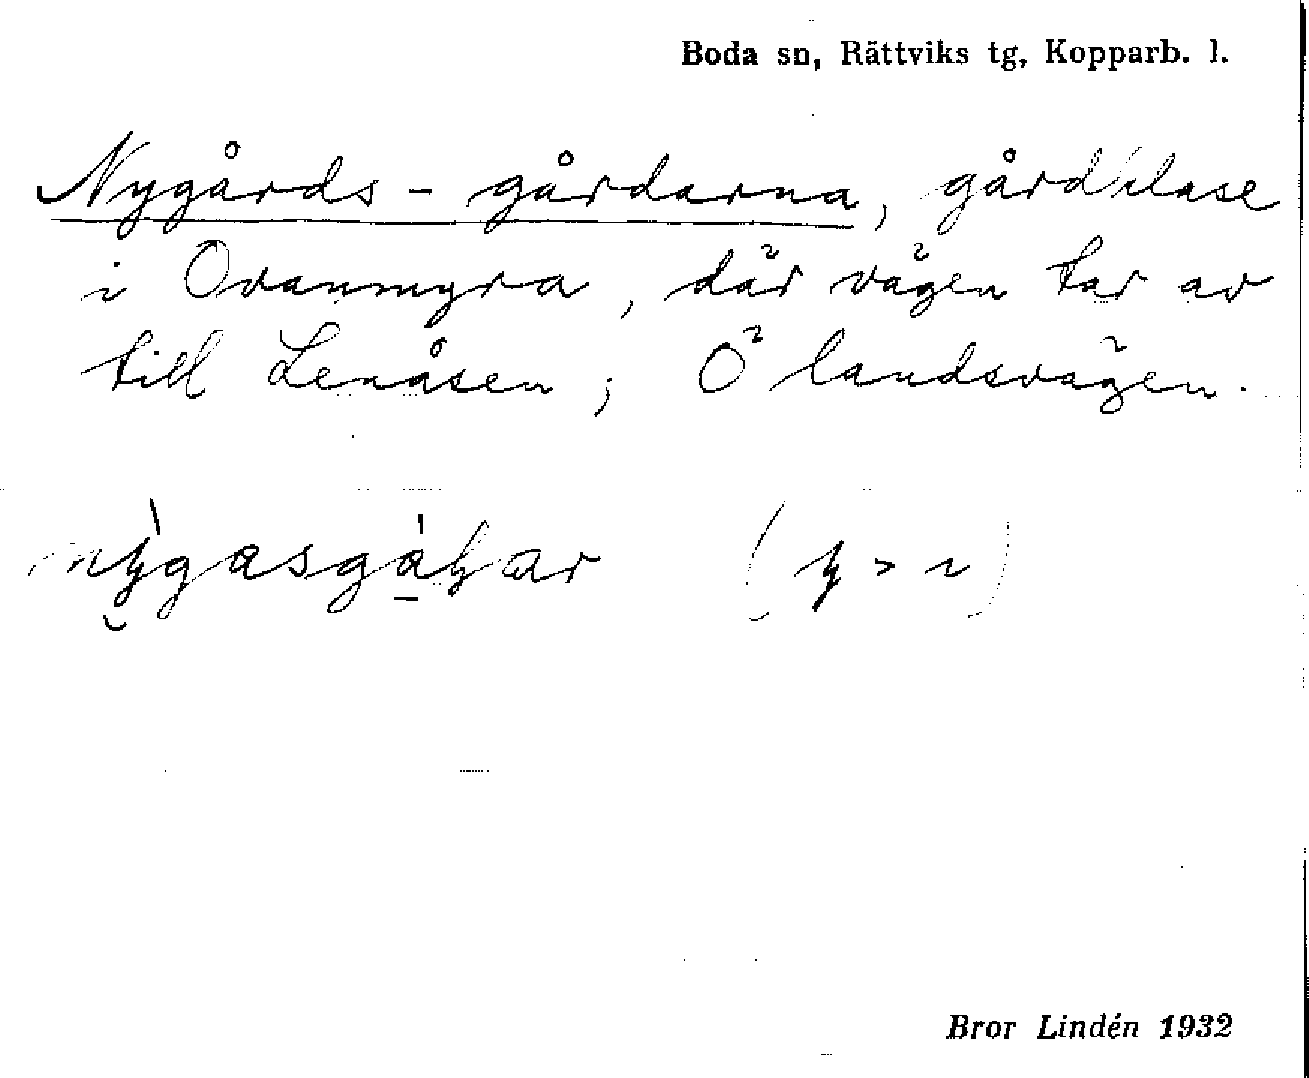 Boda sn, Rättviks tg, Kopparb. l.
Nygårds - gårdarna, gårdklase
i Ovanmyra, där vägen tar av
till Lenåsen; Ö landsvägen.
(y > i)
Bror Lindén 1932